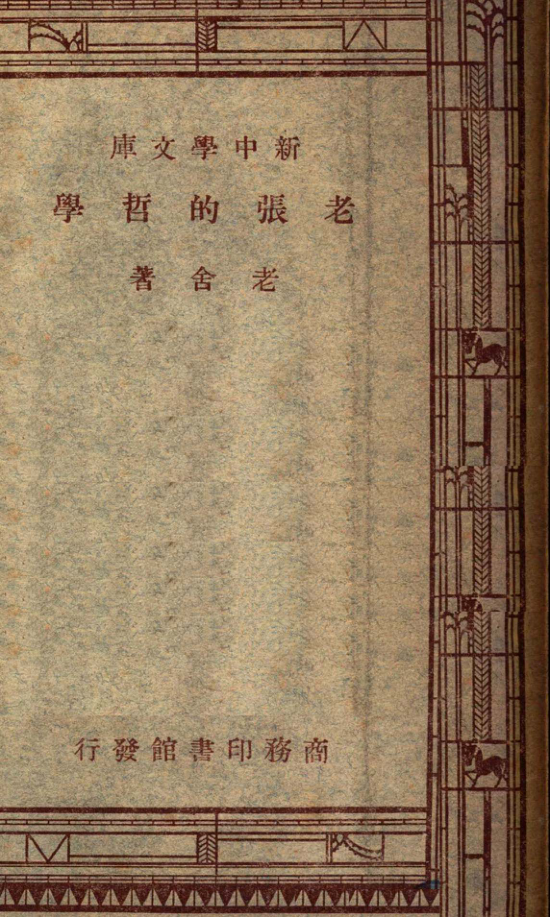 新中學文庫
老張的哲學
老舍著
商務印書館發行